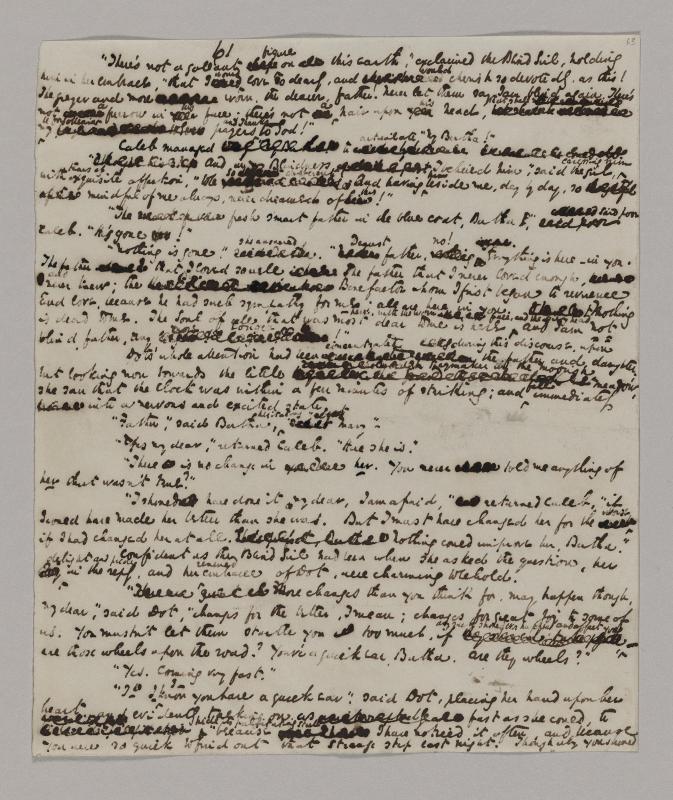 61
63
"There's not a gallant figure on this earth," exclaimed the Blind Girl, holding
him in her embrace, "that I would love so dearly, and would cherish so devotedly, as this!
The greyer and more worn, the dearer, father! Never let them say I am blind again. There's
not a furrow in his face; there's not a hair upon his head, that shall be
forgotten in my prayers and thanks to God!"
Caleb managed to articulate "My Bertha!"
"And in my Blindness, I believed him," said the girl, caressing him
with tears of exquisite affection, "to be so different! And having him beside me, day by day, so
mindful of me always, never dreamed of this!"
"The fresh smart father in the blue coat, Bertha," said poor
Caleb. "He's gone!"
"Nothing is gone," she answered. "Dearest father, no! Everything is here - in you.
The father that I loved so well; the father that I never loved enough, and
never knew; the Benefactor whom I first began to reverence
and love, because he had such sympathy for me; all are here in you. Nothing
is dead to me. The soul of all that was most dear to me is here - here, with the worn face, and the grey head. And I am not
blind, father, any longer!"
Dot's whole attention had been concentrated, during this discourse, upon the father and daughter;
but looking now towards the little haymaker in the Moorish meadow,
she saw that the clock was within a few minutes of striking; and immediately
into a nervous and excited state.
"Father," said Bertha, hesitating. "Mary."
"Yes my dear," returned Caleb. "Here she is."
"There is no change in her. You never told me anything of
her that wasn't true?"
"I should have done it my dear, I am afraid," returned Caleb, "if
I could have made her better than she was. But I must have changed her for the worse,
if I had changed her at all. Nothing could improve her, Bertha."
Confident as the Blind Girl had been when she asked the question, her
delight and pride in the reply, and her renewed embrace of Dot, were charming to behold.
"More changes than you think for, may happen though,
my dear," said Dot, "changes for the better, I mean; changes for great joy to some of
us. You mustn't let them startle you too much, if
are those wheels upon the road? You've a quick ear, Bertha. Are they wheels?"
"Yes. Coming very fast."
"I - I - I know you have a quick ear", said Dot, placing her hand upon her
heart, and evidently talking on, as fast as she could, to
"because I have noticed it often, and because
you were so quick to find out that strange step last night. Though why you should